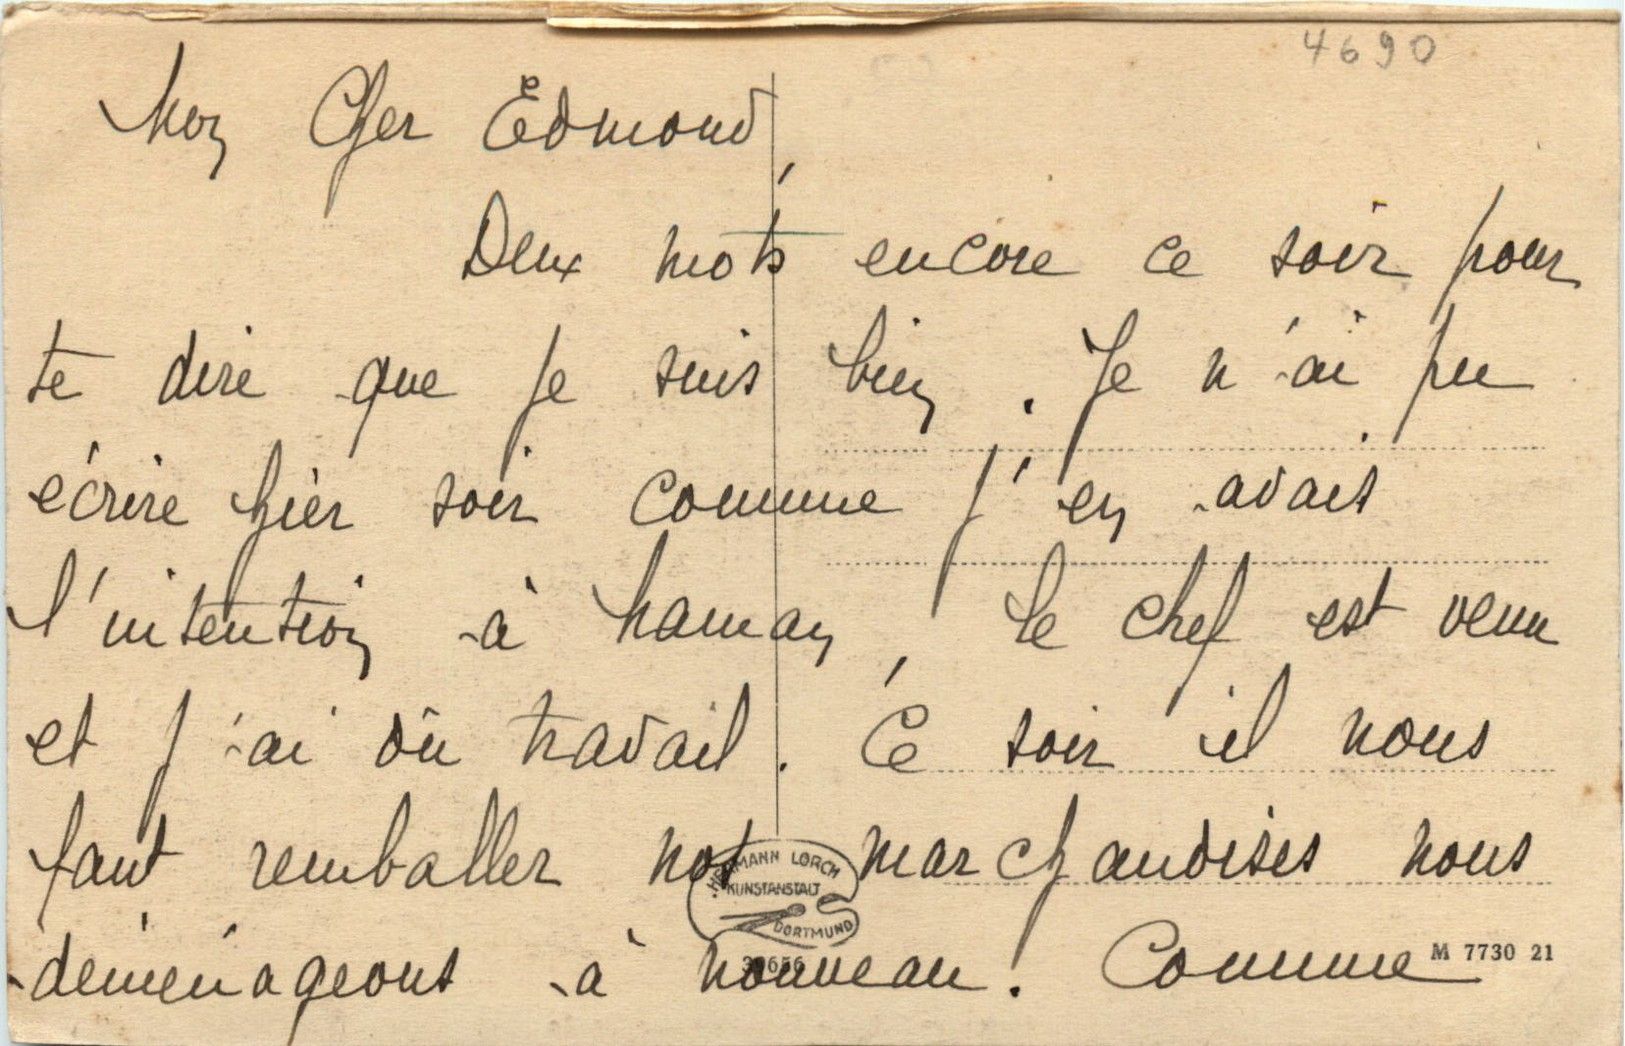 4690
Mon Cher Edmond,
Deux mots encore ce soir pour
te dire que je suis bien. Je n'ai pu
écrire hier soir comme j'en avais
l'intention à maman, le chef est venu
et j'ai dû travail. Ce soir il nous
faut remballer not marchandises nous
déménageons à nouveau. Comme
HERMANN LORCH
KUNSTANSTALT
DORTMUND
M 7730 21